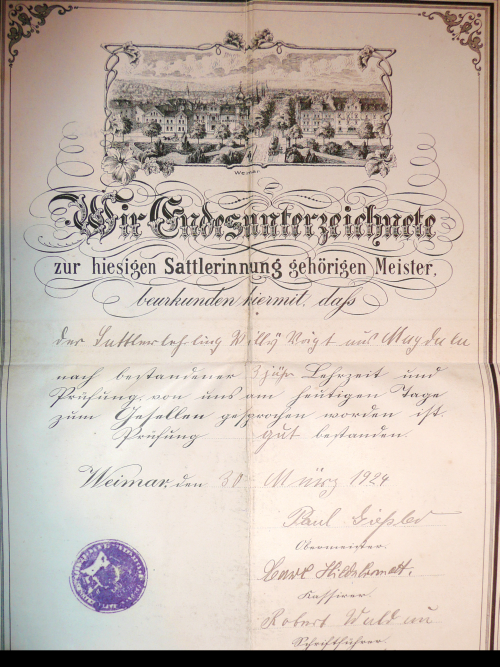 Weimar
Wir Endesunterzeichnete
zur hiesigen Sattlerinnung gehörigen Meister,
beurkunden hiermit, daß
der Sattlerlehrling Willy Vogt aus Magdala
nach bestandener 3 jähr Lehrzeit und
Prüfung, von uns am heutigen Tage
zum Gesellen gesprochen worden ist.
Prüfung gut bestanden.
Weimar, den 30 März 1924
Paul
Obermeister.
Carl
Kassirer.
Robert
Schriftführer.